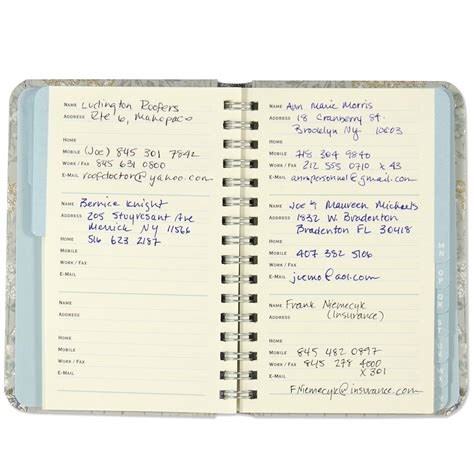 NAME Ludington Roofers
ADDRESS Rte 6, Mahopac
HOME
MOBILE (Joe) 845 301 7842
WORK / FAX 845 631 0800
E-MAIL roofdoctor@yahoo.com
NAME Bernice Knight
ADDRESS 205 Stuyvesant Ave
Merrick NY 11566
HOME 516 623 2187
MOBILE
WORK / FAX
E-MAIL
NAME
ADDRESS
HOME
MOBILE
WORK / FAX
E-MAIL
NAME Ann Marie Morris
ADDRESS 18 Cranberry St.
Brooklyn NY 10603
HOME
MOBILE 718 304 9840
WORK / FAX 212 555 0710 x 43
E-MAIL annspersonnel@gmail.com
NAME Joe & Maureen Michaels
ADDRESS 1832 W Bradenton
Bradenton FL 30418
HOME
MOBILE 407 382 5106
WORK / FAX
E-MAIL jvcmo@aol.com
NAME Frank Niemecyk
ADDRESS (Insurance)
HOME
MOBILE 845 482 0897
WORK / FAX 845 278 4000
x 301
E-MAIL
FNiemecyk@insurance.com
MN
OP
QR
ST
UV
WX